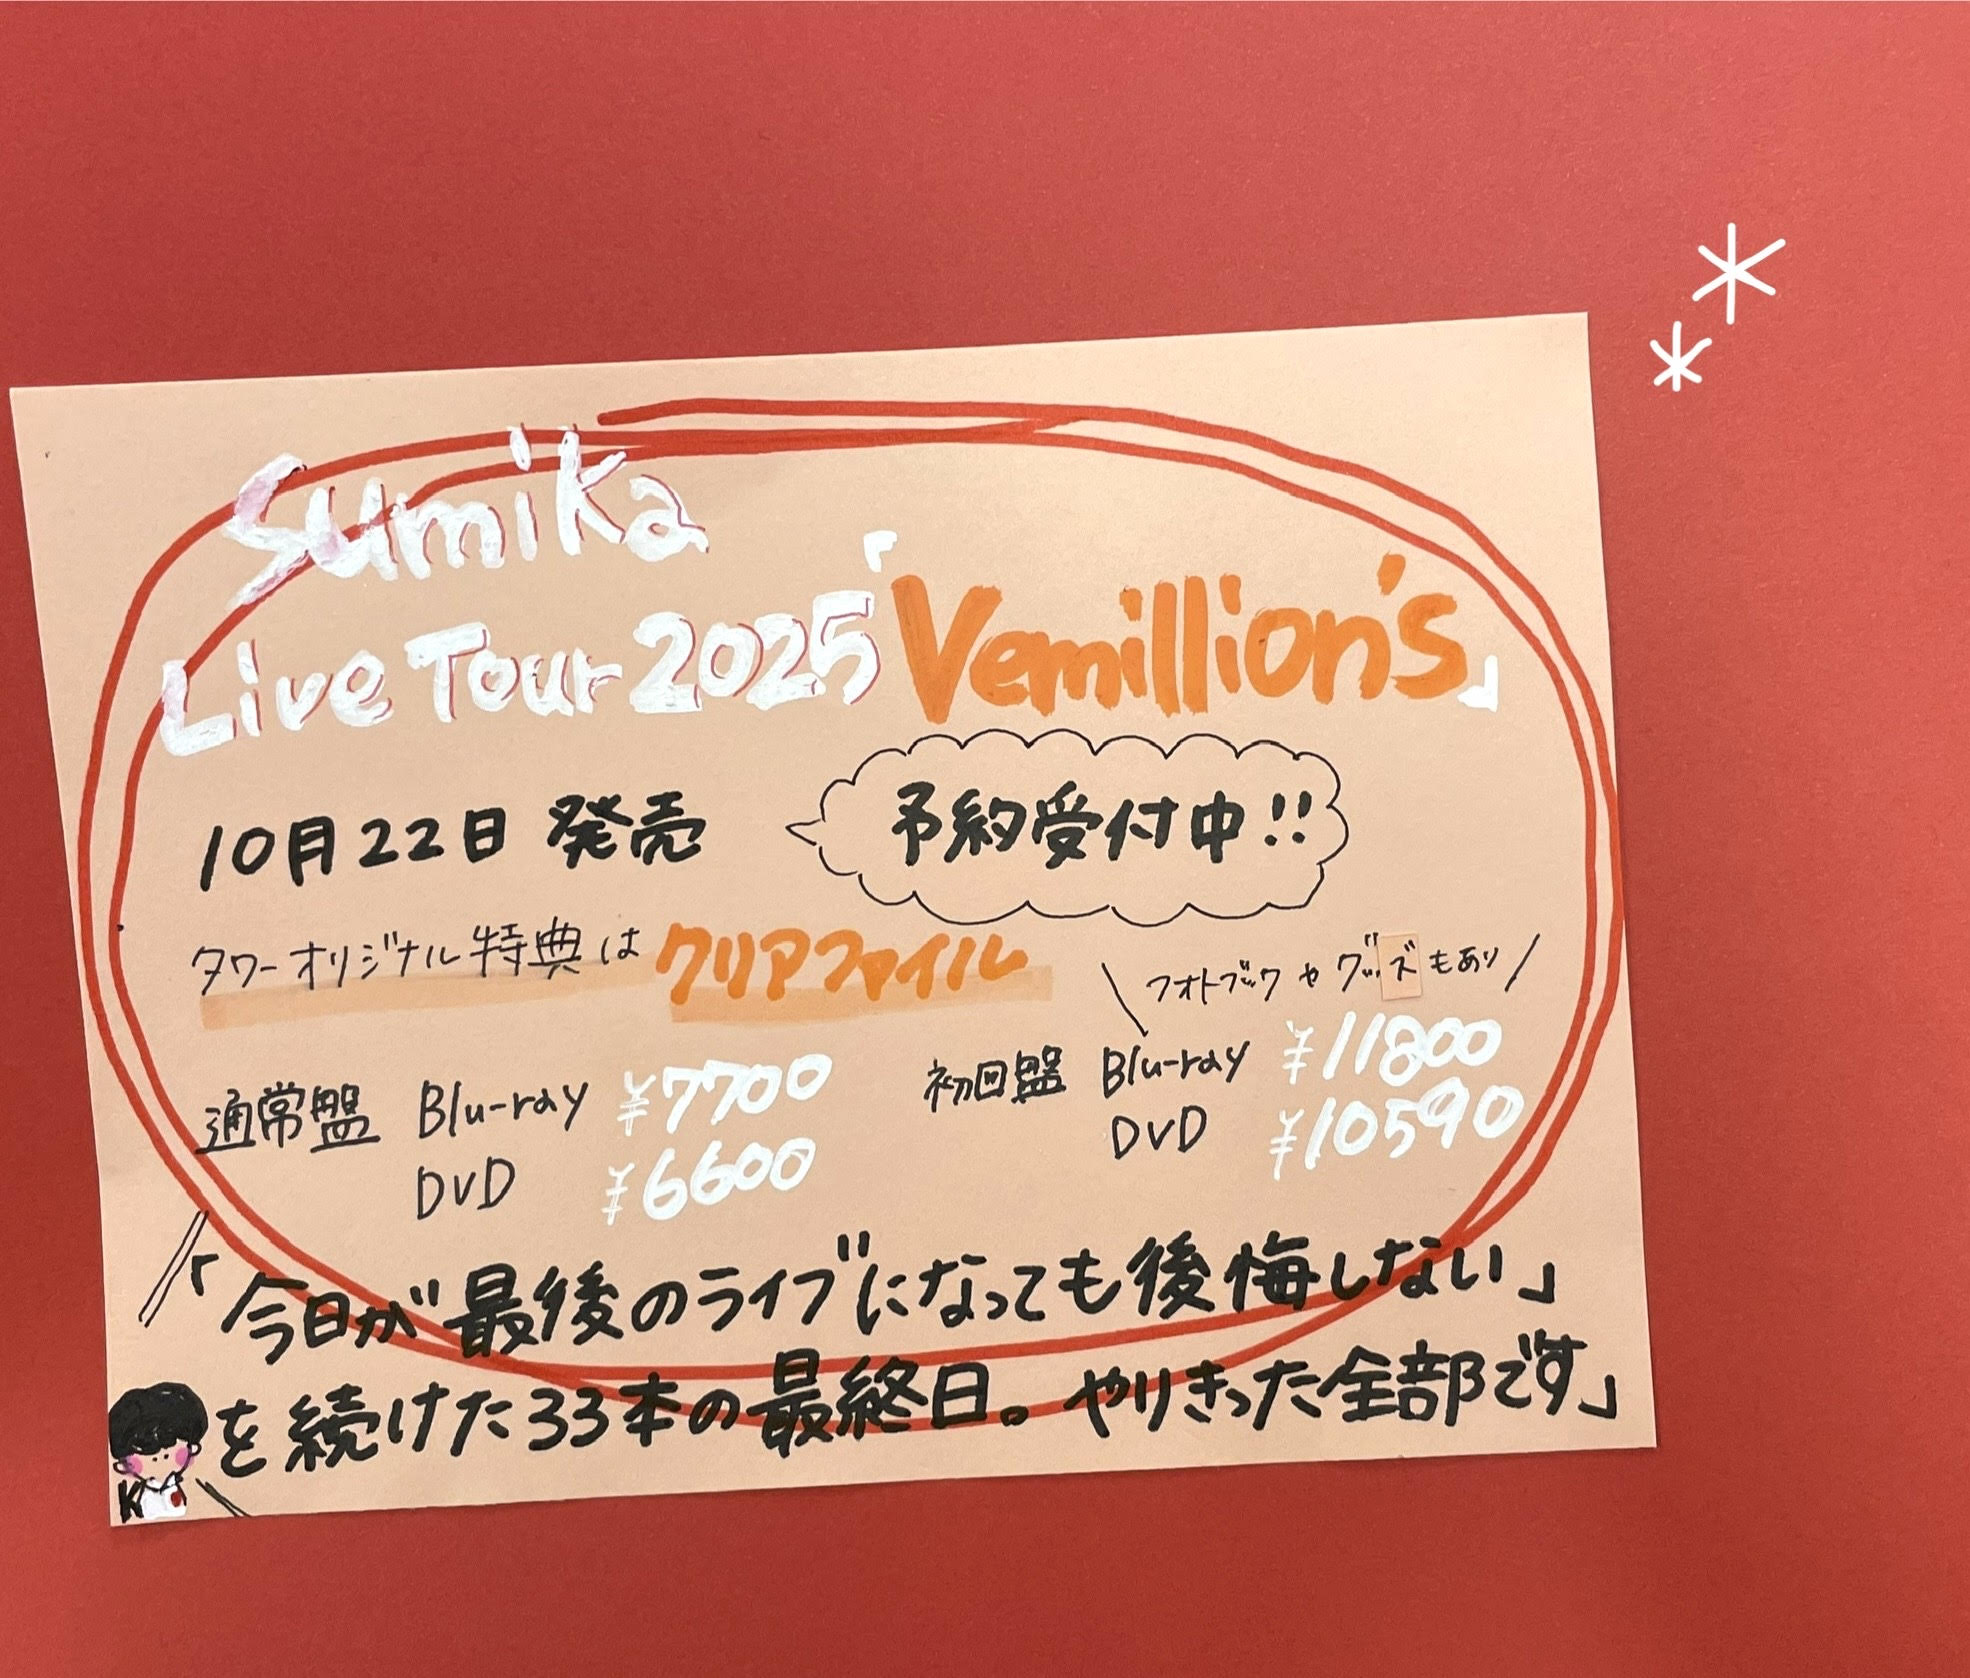 sumika
Live Tour 2025「Vemillion's」
10月22日 発売
予約受付中!!
タワーオリジナル特典は クリアファイル
フォトブックやグッズもあり
通常盤 Blu-ray ¥7700
DVD ¥6600
初回盤 Blu-ray ¥11800
DVD ¥10590
「今日が最後のライブになっても後悔しない」
を続けた33本の最終日。やりきった全部です」
K